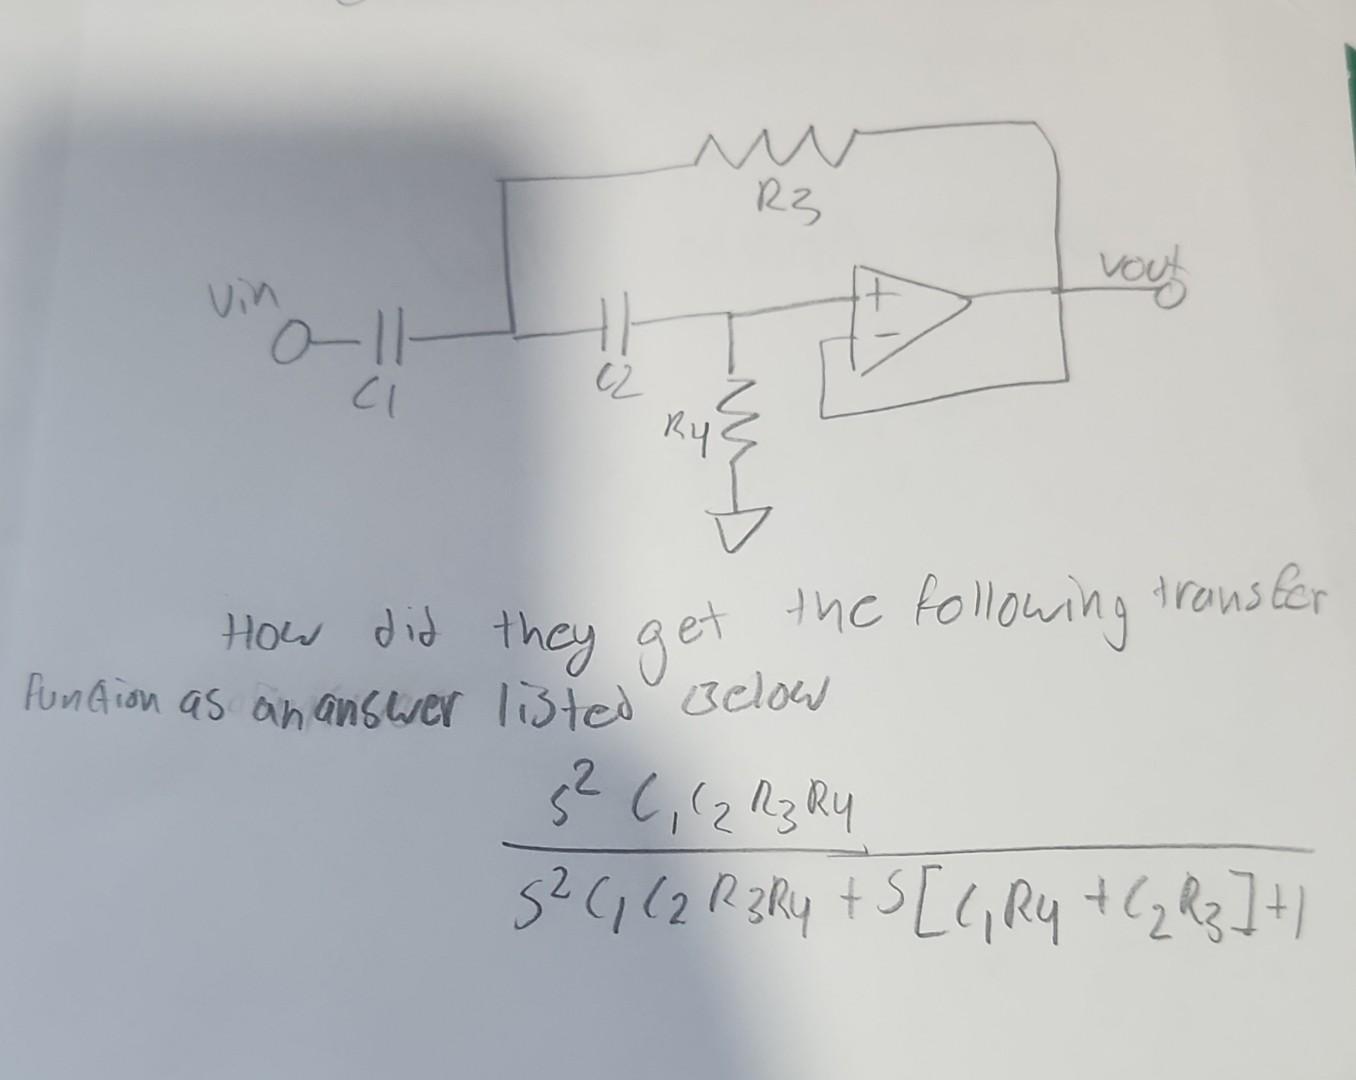 R3
Vin
Vout
+
-
C1
C2
R4
How did they get the following transfer
function as an answer listed Below
s² C₁C₂R3R4
S²C₁C₂R3R4 + S[C₁R4 + C₂R₃]+1